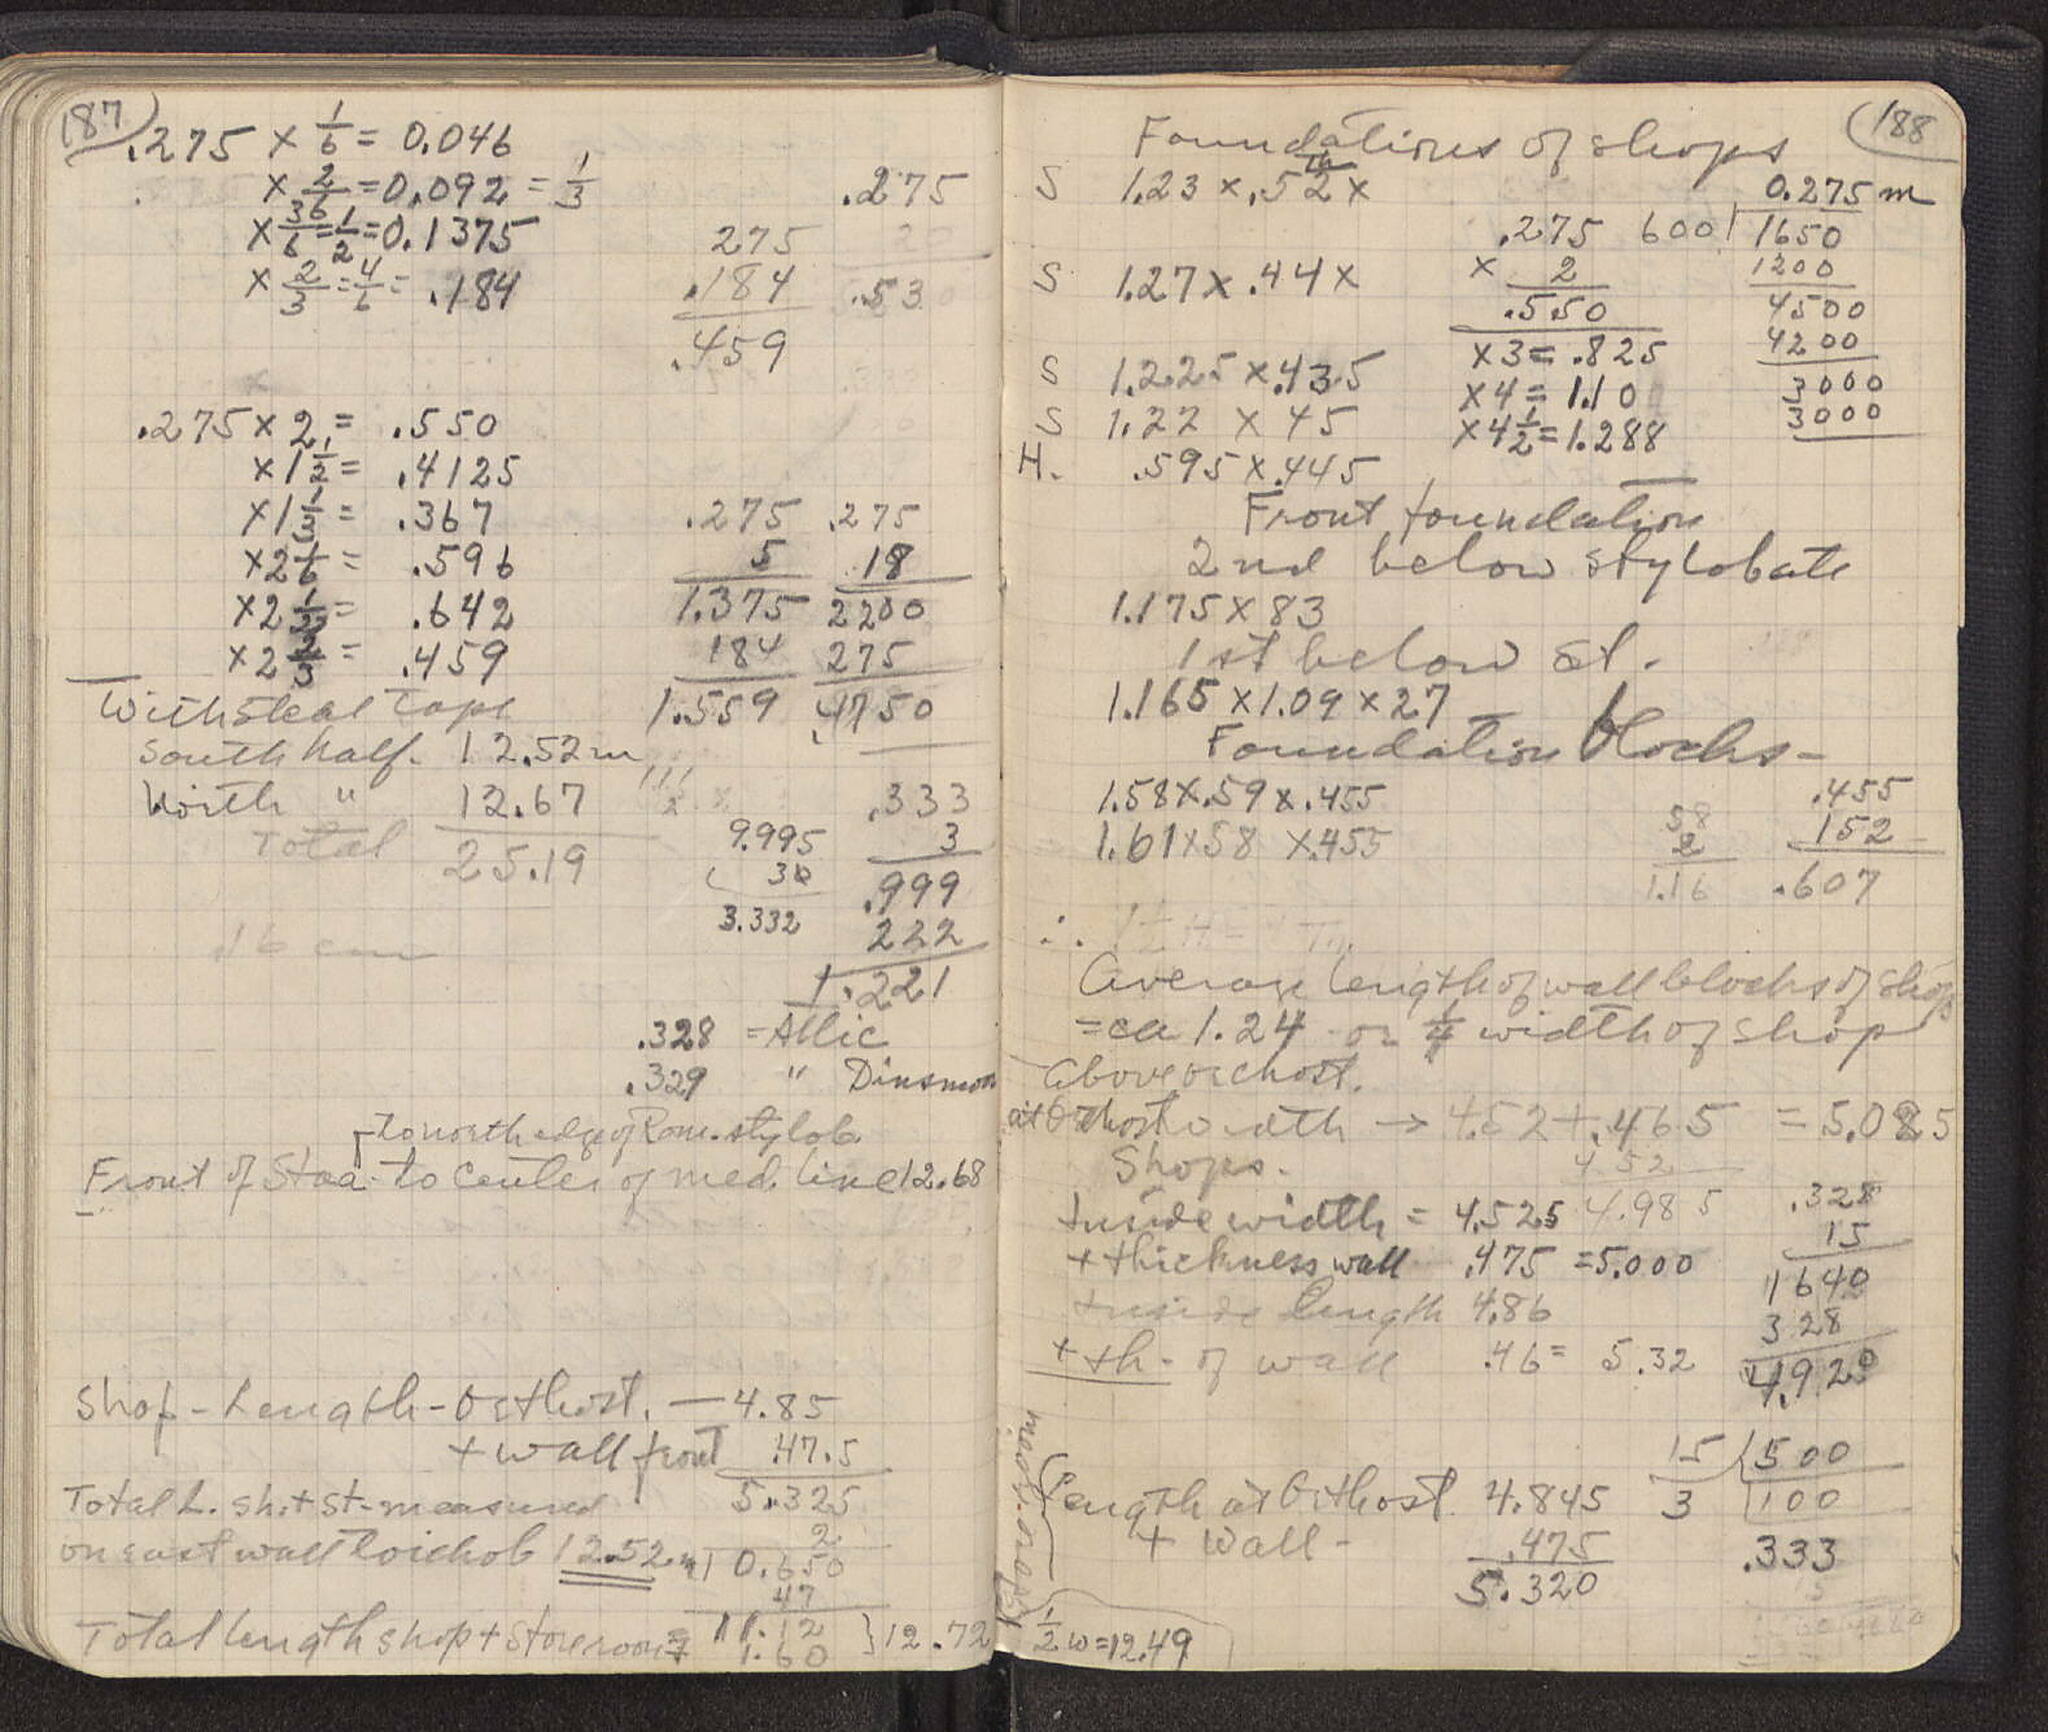 187
.275 × 1/6 = 0.046
× 2/6 = 0.092 = 1/3
× 3/6 = 1/2 = 0.1375
× 2/3 = 4/6 = .184
275
.184
.459
.275
.53
.275 × 2 = .550
× 1 1/2 = .4125
× 1 1/3 = .367
× 2 1/6 = .596
× 2 1/3 = .642
× 2 2/3 = .459
.275
5
1.375
184
1.559
.275
18
2200
275
4.950
With Steal Tape
South half. 12.52 m
North " 12.67
Total 25.19
16 cm
9.995
30
3.332
.333
3
.999
222
1.221
.328 = Attic
.329 " Dinsmoor
to north edge of Rom. stylob.
Front of Stoa to Center of med. line 12.68
Shop - Length - Orthost. — 4.85
+ wall front 47.5
5.325
2
10.650
47
11.12
1.60
} 12.72
Total L. sh. + st. measured
on east wall toichob 12.52 m
Total length shop + Storeroom =
188
Foundations of shops
S 1.23 × .52 ×
S 1.27 × .44 ×
S 1.225 × .435
S 1.22 × 45
H. .595 × .445
.275
× 2
.550
× 3 = .825
× 4 = 1.10
× 4 1/2 = 1.288
0.275 m
600 | 1650
1200
4500
4200
3000
3000
Front foundation
2nd below stylobate
1.175 × 83
1st below st.
1.165 × 1.09 × 27
Foundation blocks -
1.58 × .59 × .455
1.61 × 58 × .455
58
2
1.16
.455
152
.607
Average length of wall blocks of shops
= ca 1.24 or 1/4 width of shop
above orthost.
at Orthost width → 4.52 + .465 = 5.085
Shops.
4 52
4.985
Inside width = 4.525
+ thickness wall .475 = 5.000
Inside length 4.86
+ th. of wall .46 = 5.32
.328
15
1640
328
4.920
Length at Orthost. 4.845
+ Wall - .475
5.320
15 | 500
3 | 100
.333
1/2 w = 12.49